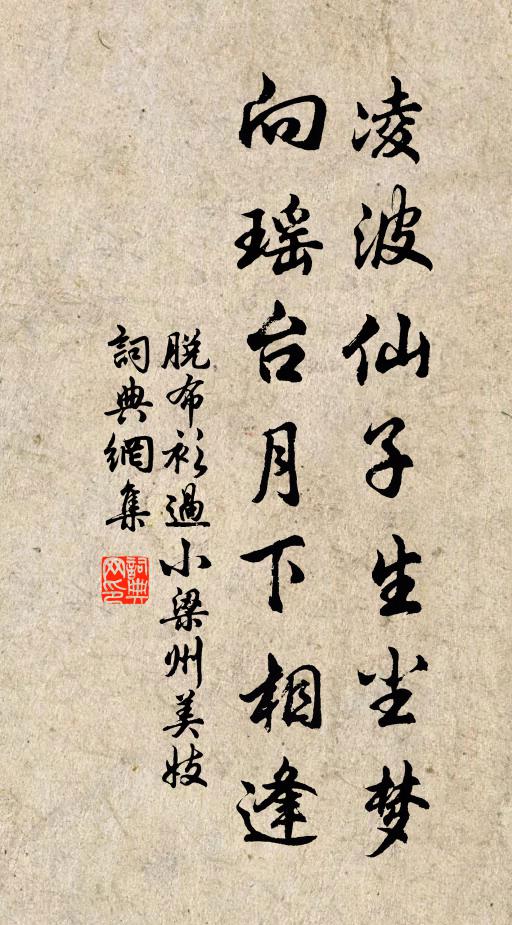 凌波仙子生尘梦
向瑶台月下相逢
脱布衫過小梁州美妓
詞典網集
詞典网印